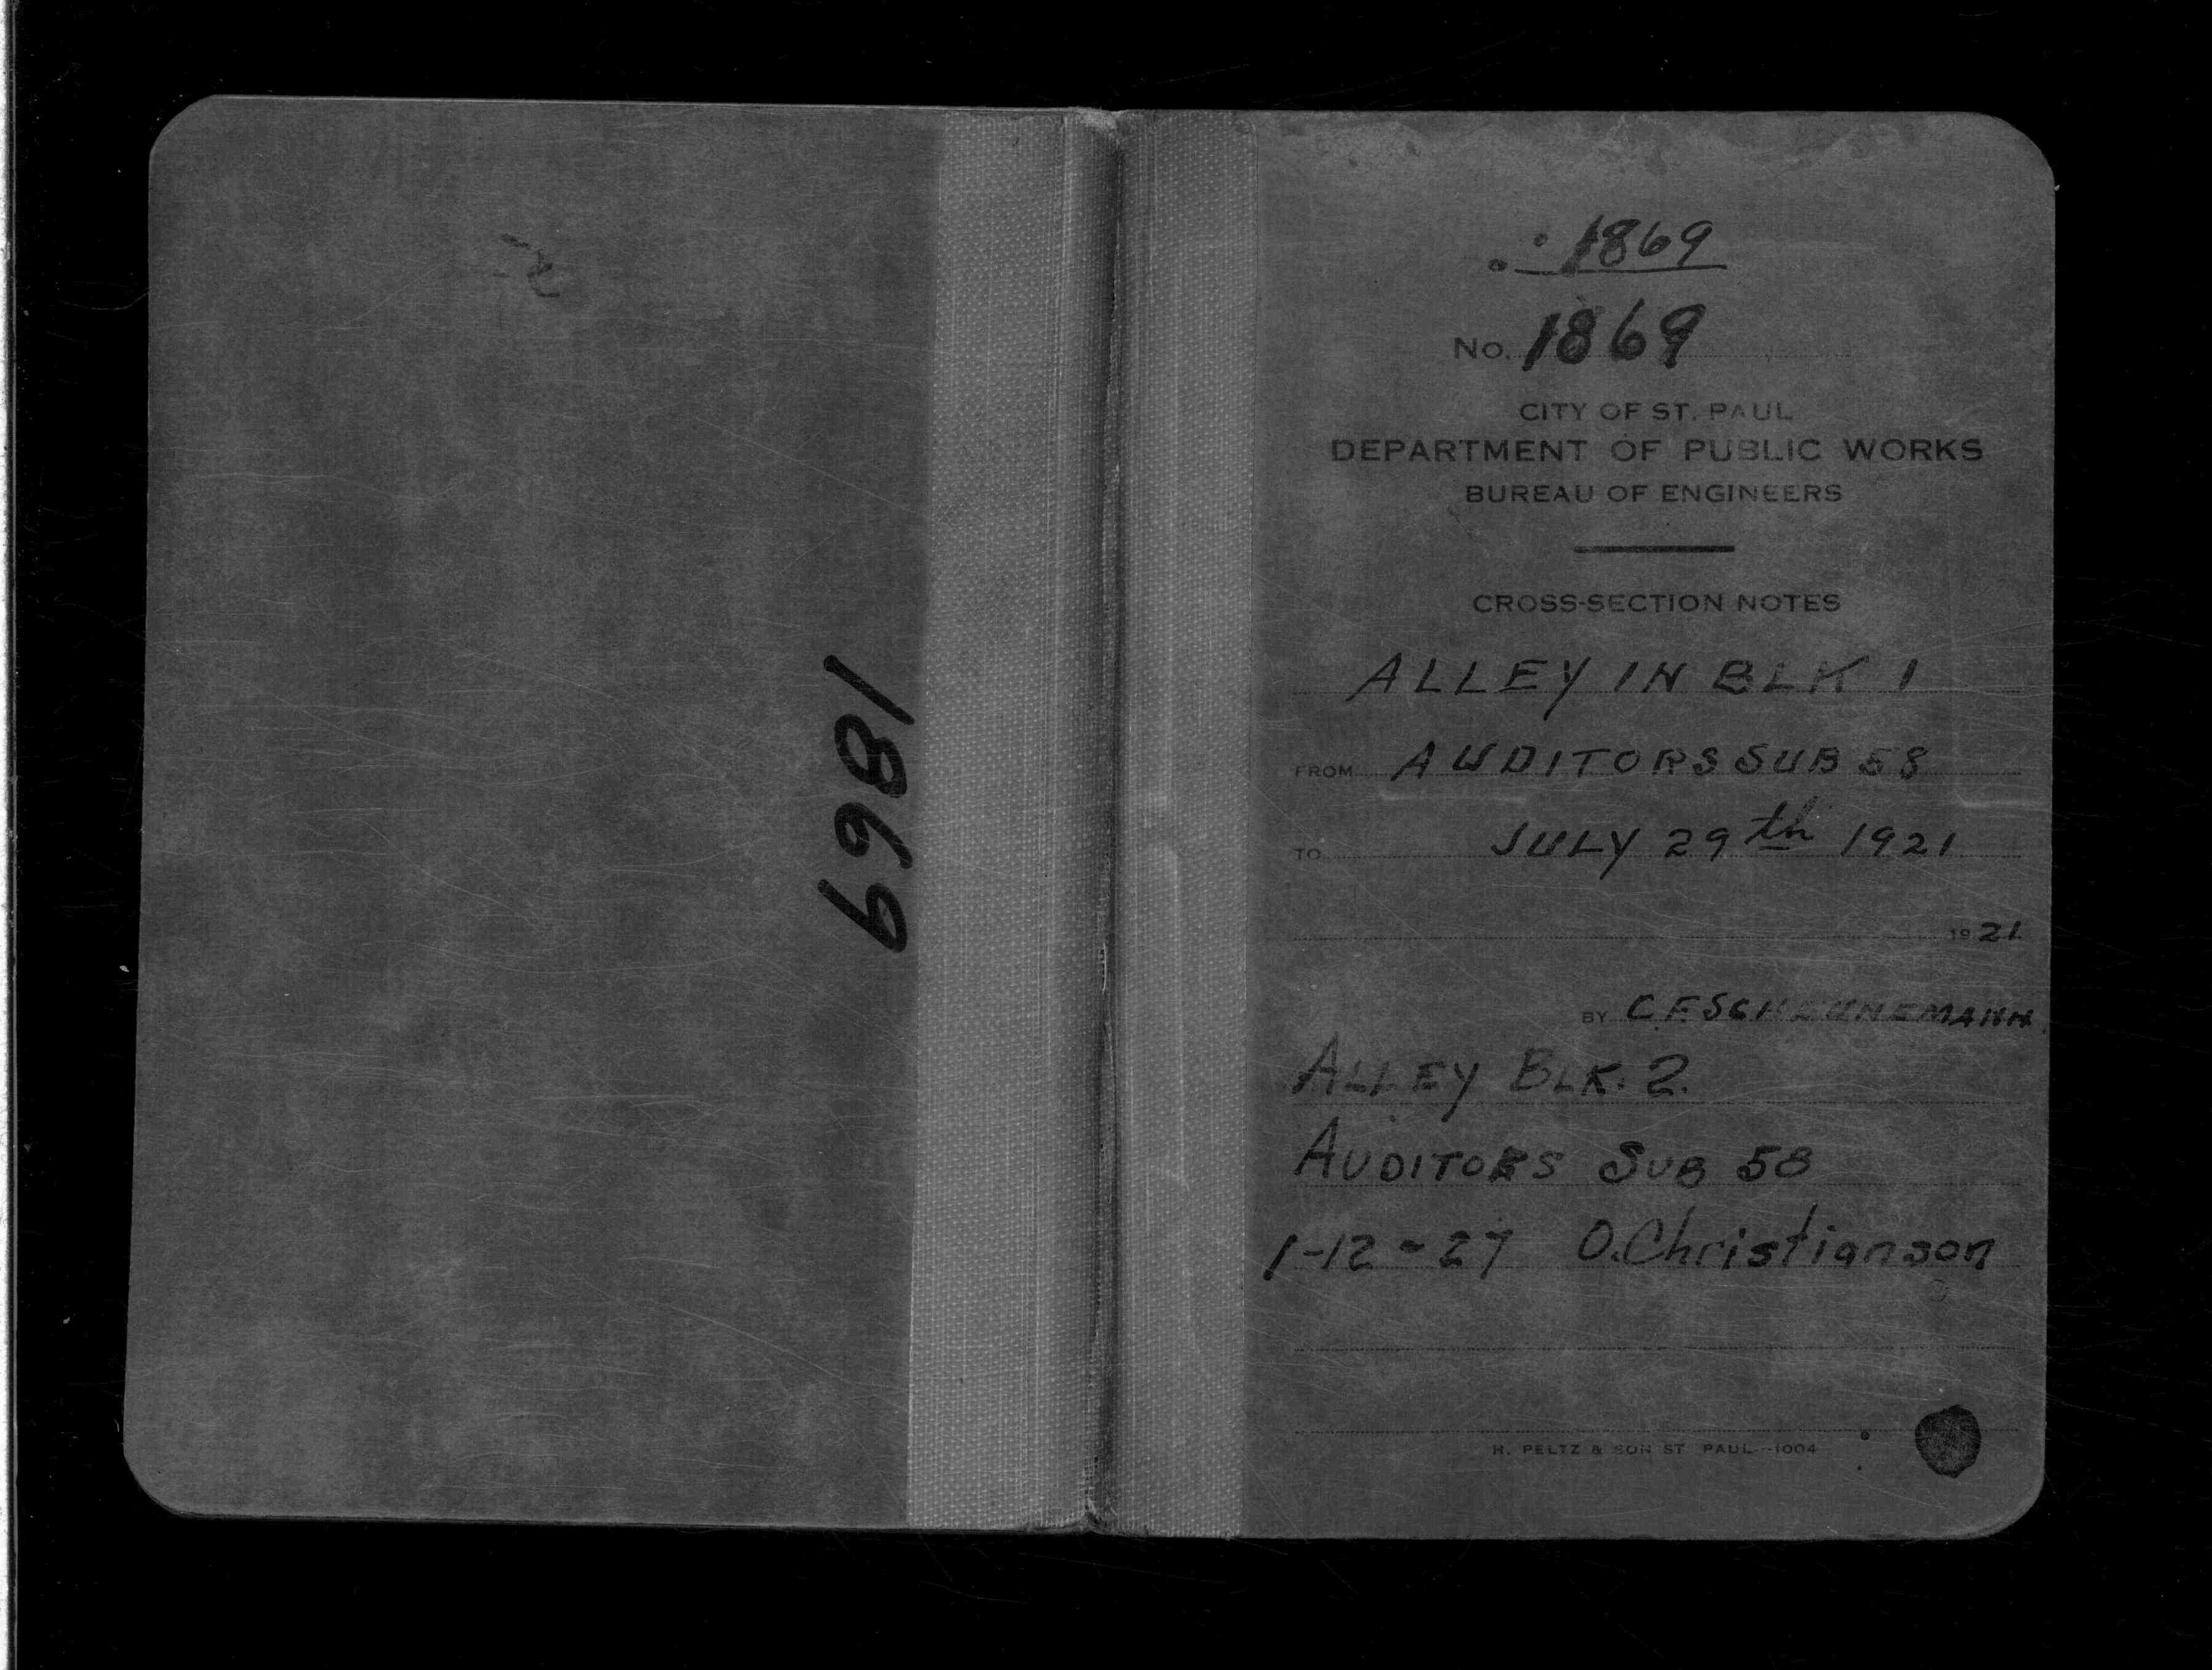 1869
1869
No. 1869
CITY OF ST. PAUL
DEPARTMENT OF PUBLIC WORKS
BUREAU OF ENGINEERS
CROSS-SECTION NOTES
ALLEY IN BLK 1
FROM AUDITORS SUB 58
TO JULY 29th 1921
1921
BY C.F. SCHEUNEMANN
ALLEY BLK. 2.
AUDITORS SUB 58
1-12-27 O. Christianson
H. PELTZ & SON ST. PAUL--1004